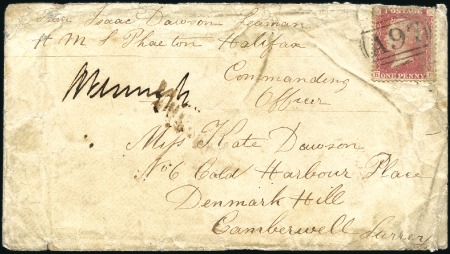 From Isaac Dawson Seaman
H M S Phaeton Halifax
Commanding
Officer
Miss Kate Dawson
No 6 Cold Harbour Place
Denmark Hill
Camberwell Surrey
POSTAGE
ONE PENNY
A97